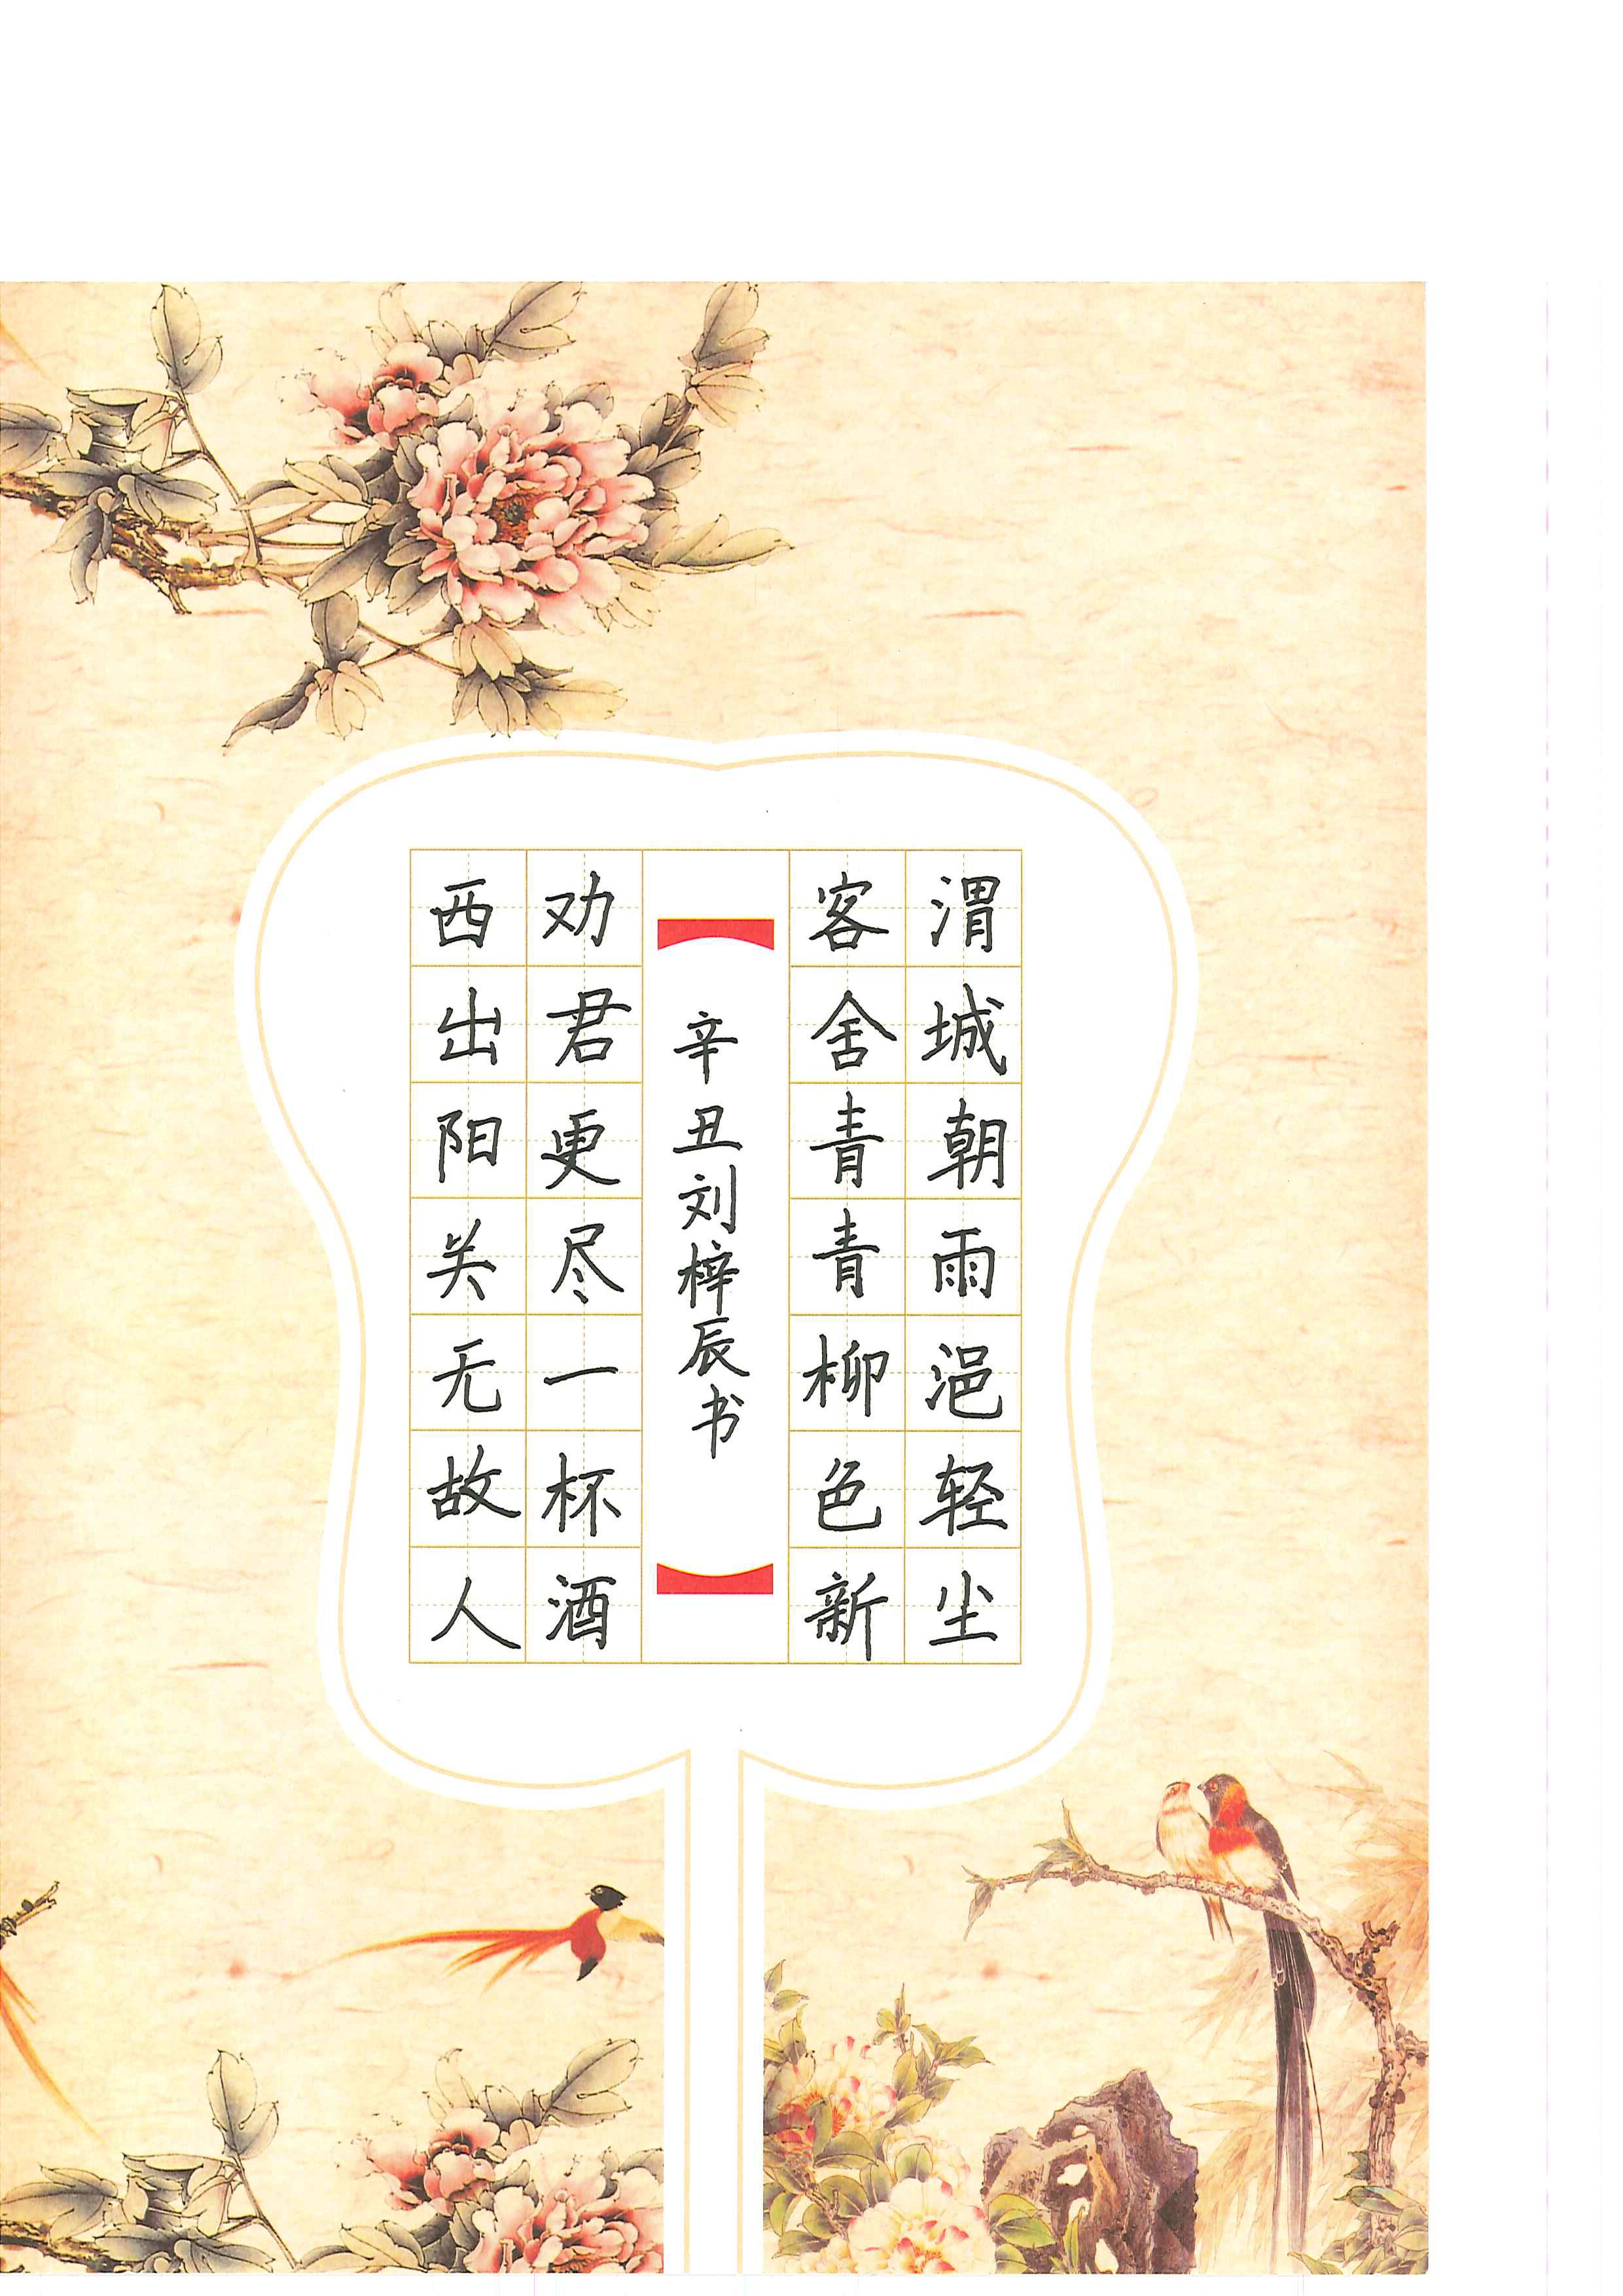 渭城朝雨浥轻尘
客舍青青柳色新
辛丑刘梓辰书
劝君更尽一杯酒
西出阳关无故人